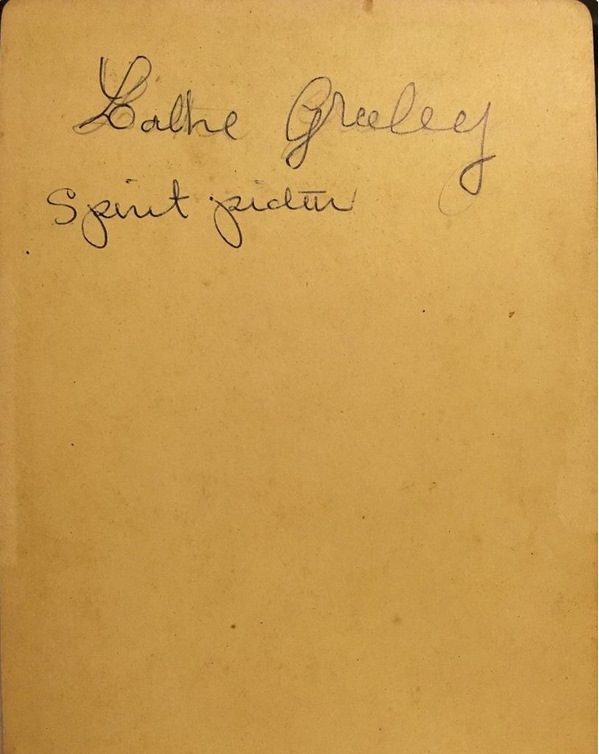 Greeley
Spirit picture